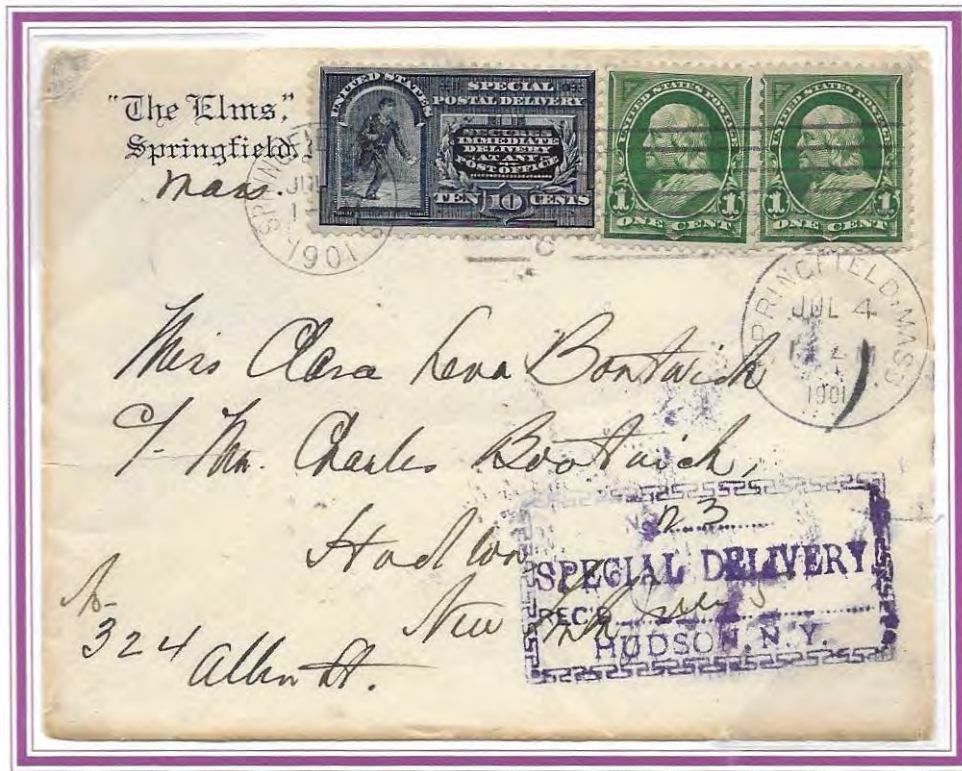 "The Elms,"
Springfield,
Mass.
SPRINGFIELD
JUL
1901
UNITED STATES
SPECIAL
POSTAL DELIVERY
SECURES
IMMEDIATE
DELIVERY
AT ANY
POST OFFICE
TEN 10 CENTS
UNITED STATES POSTAGE
1 ONE CENT 1
UNITED STATES POSTAGE
1 ONE CENT 1
SPRINGFIELD, MASS
JUL 4
1901
Miss Clara
c/- Mr. Charles
Hudson
New York
324
Allen St.
No. 23
SPECIAL DELIVERY
REC'D
HUDSON, N.Y.